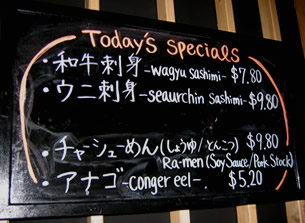 Today's Specials
・和牛刺身-wagyu sashimi-$7.80
・ウニ刺身-seaurchin sashimi-$9.80
・チャーシューめん(しょうゆ/とんこつ) $9.80
Ra-men (Soy Sauce/Pork Stock)
・アナゴ-conger eel-. $5.20